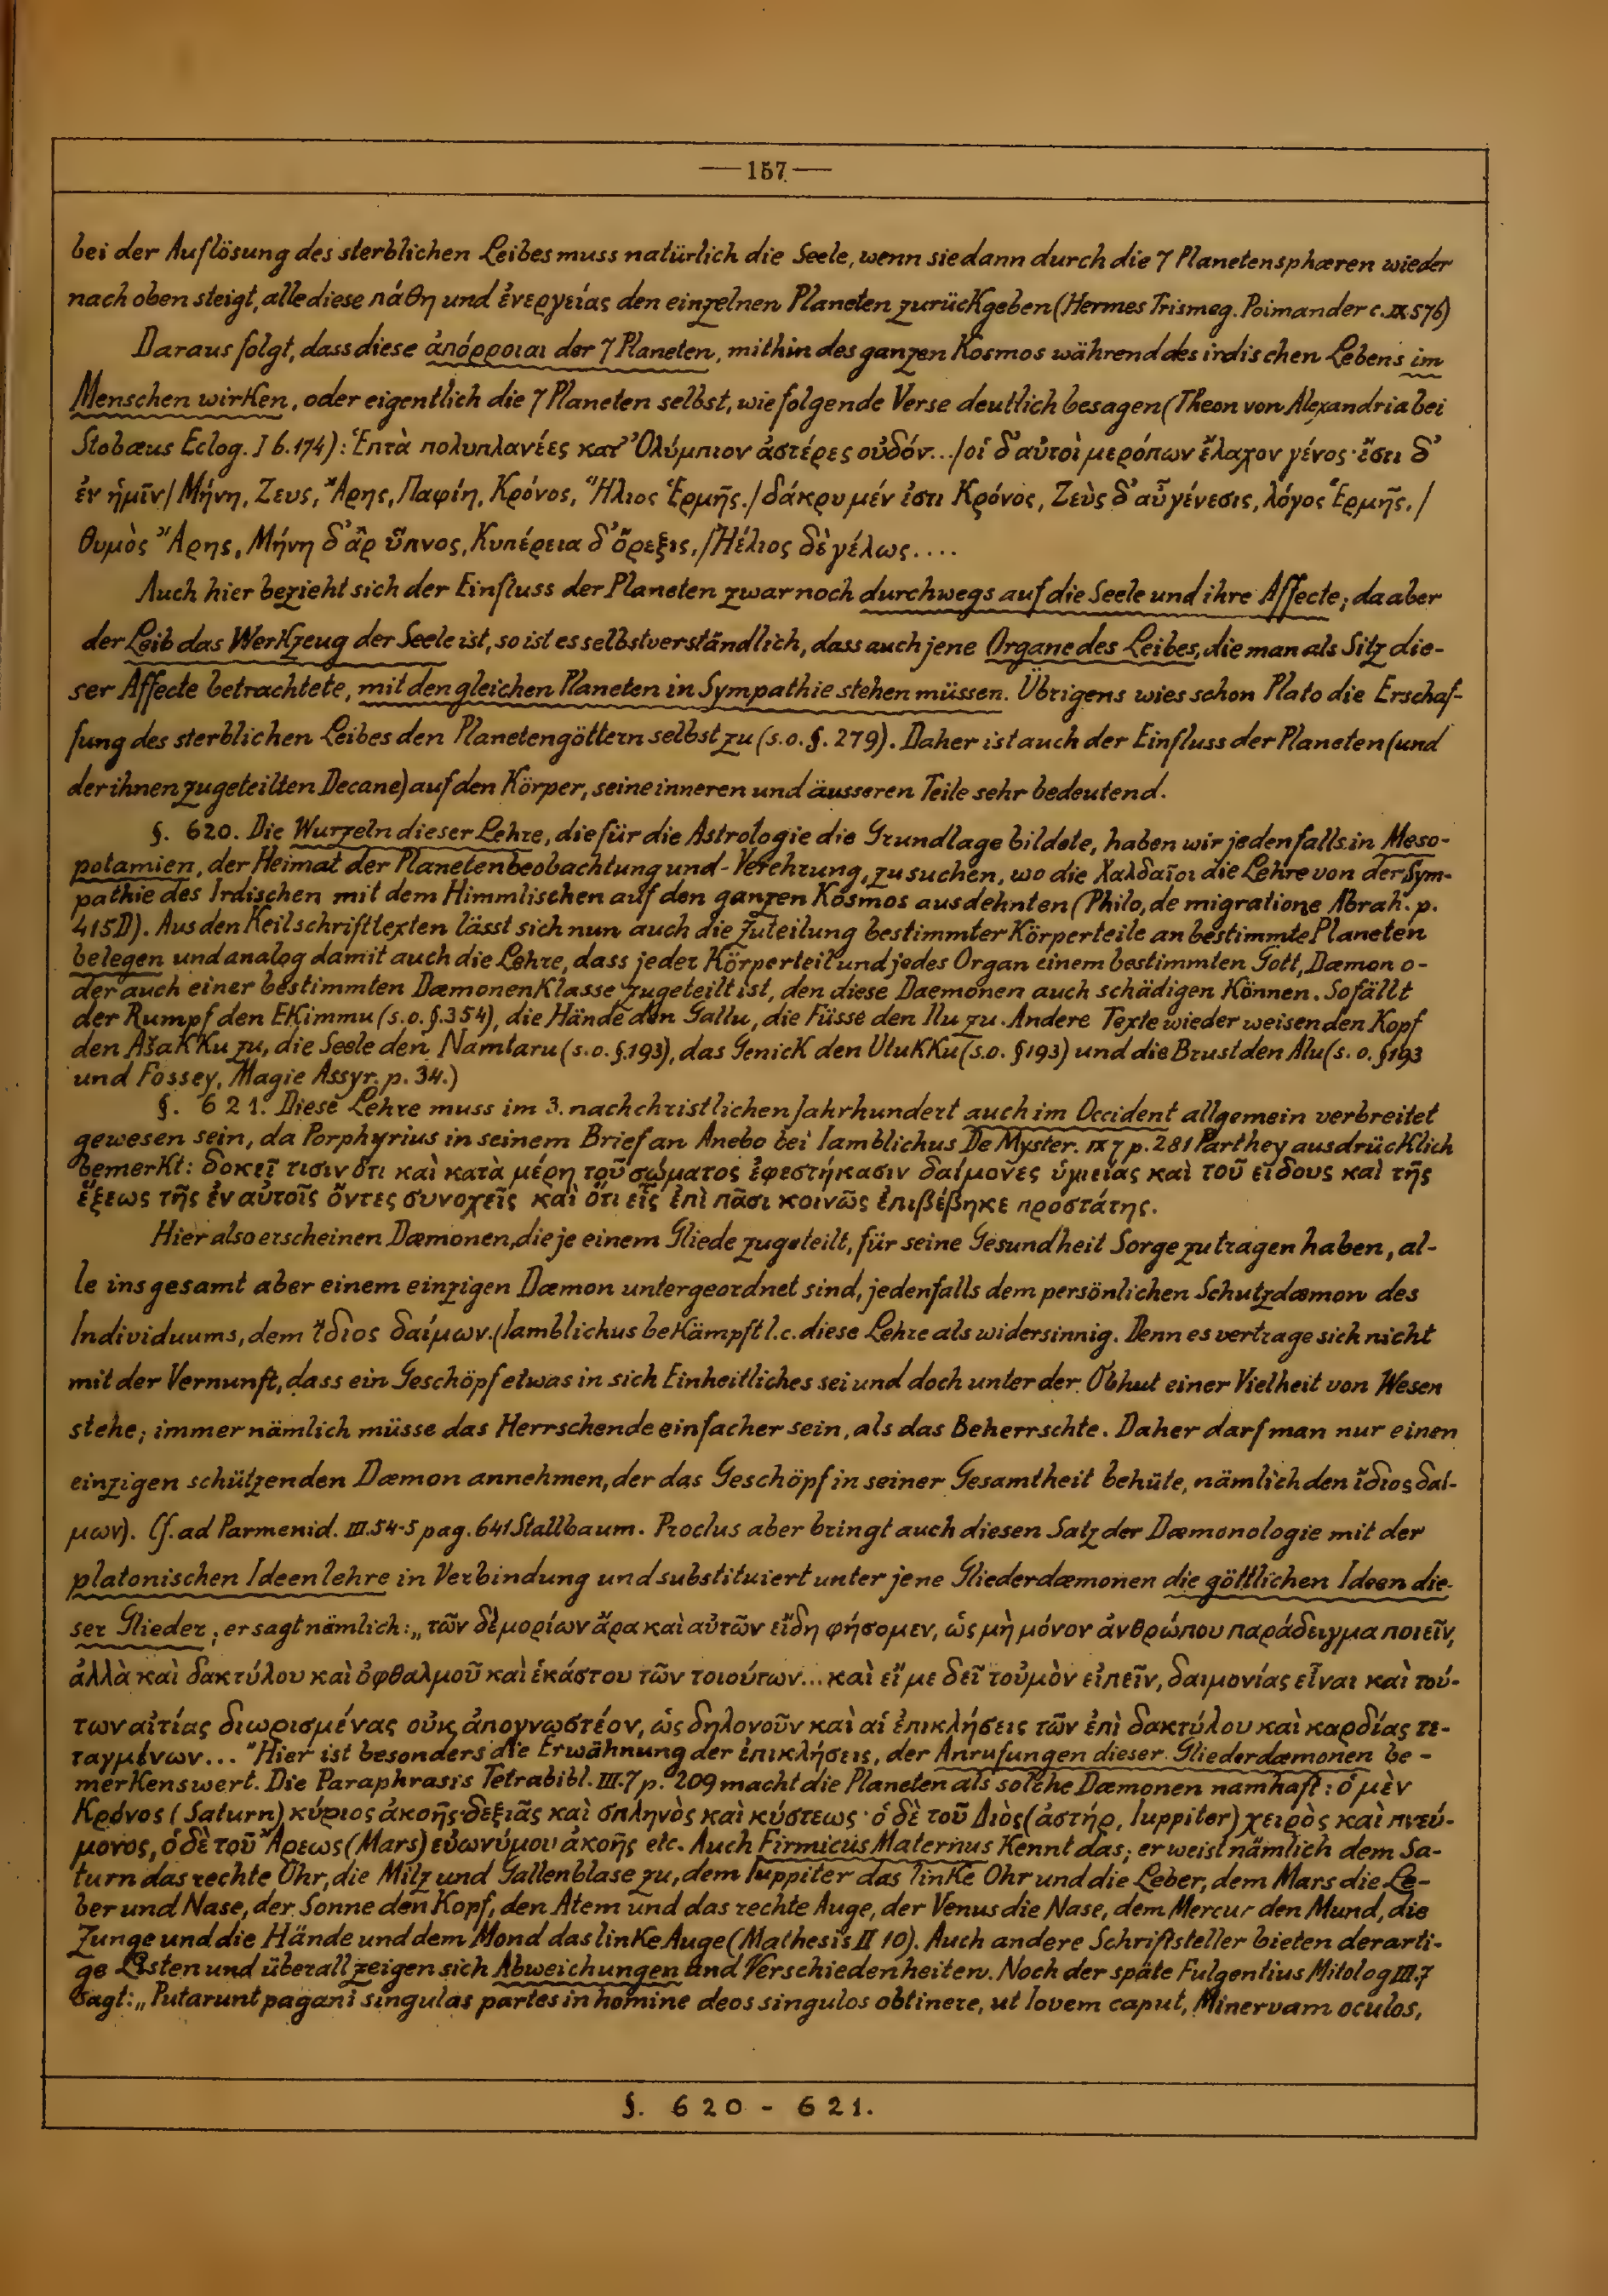 —157—
bei der Auflösung des sterblichen Leibes muss natürlich die Seele, wenn sie dann durch die 7 Planetensphæren wieder
nach oben steigt, alle diese πάθη und ἐνεργείας den einzelnen Planeten zurückgeben (Hermes Trismeg. Poimander c. IX 576)
Daraus folgt, dass diese ἀπόρροιαι der 7 Planeten, mithin des ganzen Kosmos während des irdischen Lebens im
Menschen wirken, oder eigentlich die 7 Planeten selbst, wie folgende Verse deutlich besagen (Theon von Alexandria bei
Stobæus Eclog. I 6.174): Ἑπτὰ πολυπλανέες κατ' Ὀλύμπιον ἀστέρες οὐδόν.../οἱ δ'αὐτοὶ μερόπων ἔλαχον γένος· ἔστι δ'
ἐν ἡμῖν/Μήνη, Ζευς, Ἄρης, Παφίη, Κρόνος, Ἥλιος Ἑρμῆς./δάκρυ μέν ἐστι Κρόνος, Ζεὺς δ'αὖ γένεσις, λόγος Ἑρμῆς./
Θυμὸς Ἄρης, Μήνη δ'ἂρ ὕπνος, Κυπέρεια δ'ὄρεξις,/Ἠέλιος δὲ γέλως....
Auch hier bezieht sich der Einfluss der Planeten zwar noch durchwegs auf die Seele und ihre Affecte; da aber
der Leib das Werkzeug der Seele ist, so ist es selbstverständlich, dass auch jene Organe des Leibes, die man als Sitz die-
ser Affecte betrachtete, mit den gleichen Planeten in Sympathie stehen müssen. Übrigens wies schon Plato die Erschaf-
fung des sterblichen Leibes den Planetengöttern selbst zu (s.o. §. 279). Daher ist auch der Einfluss der Planeten (und
der ihnen zugeteilten Decane) auf den Körper, seine inneren und äusseren Teile sehr bedeutend.
§. 620. Die Wurzeln dieser Lehre, die für die Astrologie die Grundlage bildete, haben wir jedenfalls in Meso-
potamien, der Heimat der Planetenbeobachtung und -Verehrung, zu suchen, wo die Χαλδαῖοι die Lehre von der Sym-
pathie des Irdischen mit dem Himmlischen auf den ganzen Kosmos ausdehnten (Philo, de migratione Abrah. p.
415D). Aus den Keilschrifttexten lässt sich nun auch die Zuteilung bestimmter Körperteile an bestimmte Planeten
belegen und analog damit auch die Lehre, dass jeder Körperteil und jedes Organ einem bestimmten Gott, Dæmon o-
der auch einer bestimmten Dæmonenklasse zugeteilt ist, den diese Daemonen auch schädigen können. So fällt
der Rumpf den Ekimmu (s.o. §.354), die Hände den Gallu, die Füsse den Ilu zu. Andere Texte wieder weisen den Kopf
den Ašakku zu, die Seele den Namtaru (s.o. §.193), das Genick den Utukku (s.o. §193) und die Brust den Alu (s. o. §193
und Fossey, Magie Assyr. p. 34.)
§. 621. Diese Lehre muss im 3. nachchristlichen Jahrhundert auch im Occident allgemein verbreitet
gewesen sein, da Porphyrius in seinem Brief an Anebo bei Iamblichus De Myster. IX 7 p. 281 Parthey ausdrücklich
bemerkt: δοκεῖ τισιν ὅτι καὶ κατὰ μέρη τοῦ σώματος ἐφεστήκασιν δαίμονες ὑγιείας καὶ τοῦ εἴδους καὶ τῆς
ἕξεως τῆς ἐν αὐτοῖς ὄντες συνοχεῖς καὶ ὅτι εἷς ἐπὶ πᾶσι κοινῶς ἐπιβέβηκε προστάτης.
Hier also erscheinen Dæmonen, die je einem Gliede zugeteilt, für seine Gesundheit Sorge zu tragen haben, al-
le insgesamt aber einem einzigen Dæmon untergeordnet sind, jedenfalls dem persönlichen Schutzdæmon des
Individuums, dem ἴδιος δαίμων. (Iamblichus bekämpft l.c. diese Lehre als widersinnig. Denn es vertrage sich nicht
mit der Vernunft, dass ein Geschöpf etwas in sich Einheitliches sei und doch unter der Obhut einer Vielheit von Wesen
stehe; immer nämlich müsse das Herrschende einfacher sein, als das Beherrschte. Daher darf man nur einen
einzigen schützenden Dæmon annehmen, der das Geschöpf in seiner Gesamtheit behüte, nämlich den ἴδιος δαί-
μων). Cf. ad Parmenid. III.54-5 pag. 641 Stallbaum. Proclus aber bringt auch diesen Satz der Dæmonologie mit der
platonischen Ideenlehre in Verbindung und substituiert unter jene Gliederdæmonen die göttlichen Ideen die-
ser Glieder; er sagt nämlich: „τῶν δὲ μορίων ἄρα καὶ αὐτῶν εἴδη φήσομεν, ὡς μὴ μόνον ἀνθρώπου παράδειγμα ποιεῖν,
ἀλλὰ καὶ δακτύλου καὶ ὀφθαλμοῦ καὶ ἑκάστου τῶν τοιούτων... καὶ εἴ με δεῖ τοὐμὸν εἰπεῖν, δαιμονίας εἶναι καὶ τού-
των αἰτίας διωρισμένας οὐκ ἀπογνωστέον, ὡς δηλονοῦν καὶ αἱ ἐπικλήσεις τῶν ἐπὶ δακτύλου καὶ καρδίας τε-
ταγμένων..." Hier ist besonders die Erwähnung der ἐπικλήσεις, der Anrufungen dieser Gliederdæmonen be-
merkenswert. Die Paraphrasis Tetrabibl. III.7 p. 209 macht die Planeten als solche Dæmonen namhaft: ὁ μὲν
Κρόνος (Saturn) κύριος ἀκοῆς δεξιᾶς καὶ σπληνὸς καὶ κύστεως· ὁ δὲ τοῦ Διὸς (ἀστήρ, Iuppiter) χειρὸς καὶ πνεύ-
μονος, ὁ δὲ τοῦ Ἄρεως (Mars) εὐωνύμου ἀκοῆς etc. Auch Firmicus Maternus kennt das; er weist nämlich dem Sa-
turn das rechte Ohr, die Milz und Gallenblase zu, dem Iuppiter das linke Ohr und die Leber, dem Mars die Le-
ber und Nase, der Sonne den Kopf, den Atem und das rechte Auge, der Venus die Nase, dem Mercur den Mund, die
Zunge und die Hände und dem Mond das linke Auge (Mathesis II 10). Auch andere Schriftsteller bieten derarti-
ge Listen und überall zeigen sich Abweichungen und Verschiedenheiten. Noch der späte Fulgentius Mitolog III.7
sagt: „Putarunt pagani singulas partes in homine deos singulos obtinere, ut Iovem caput, Minervam oculos,
§. 620 - 621.